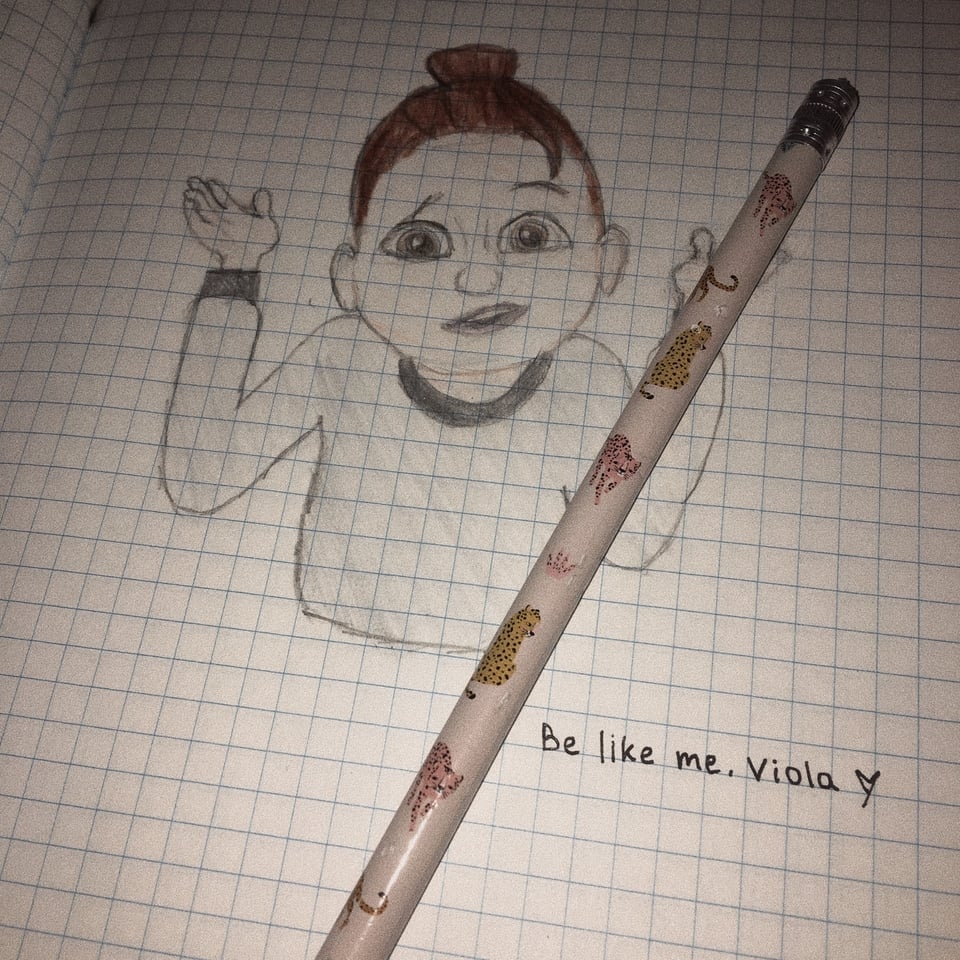 Be like me. Viola